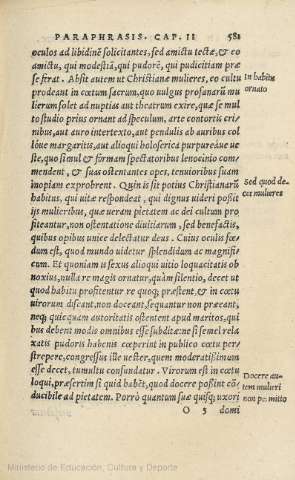 PARAPHRASIS. CAP. II 581
oculos ad libidinē solicitantes, sed amictu tectæ, & eo
amictu, qui modestiā, qui pudorē, qui pudicitiam præ
se ferat. Absit autem ut Christianæ mulieres, eo cultu
prodeant in cœtum sacrum, quo uulgus prophanarū mu
lierum solet ad nuptias aut theatrum exire, quæ se mul
to studio prius ornant ad speculum, arte contortis cri⸗
nibus, aut auro intertexto, aut pendulis ab auribus col
lóue margaritis, aut alioqui holoserica purpureáue ue
ste, quo simul & formam spectatoribus lenocinio com⸗
mendent, & suas ostentantes opes, tenuioribus suam
inopiam exprobrent. Quin is sit potius Christianarū
habitus, qui uitæ respondeat, qui dignus uideri possit
ijs mulieribus, quæ ueram pietatem ac dei cultum pro
fiteantur, non ostentatione diuitiarum, sed benefactis,
quibus opibus unice delectatur deus. Cuius oculis fœe
dum est, quod mundo uidetur splendidum ac magnifi⸗
cum. Et quoniam is sexus alioqui uitio loquacitatis ob
noxius, nulla re magis ornatur, quàm silentio, decet ut
quod habitu profitentur re quoq; præstent, & in cœtu
uirorum discant, non doceant, sequantur non præeant,
neq; quicquam autoritatis ostentent apud maritos, qui
bus debent modis omnibus esse subditæ: ne si semel rela
xatis pudoris habenis cœperint in publico cœtu per⸗
strepere, congressus iste uester, quem moderatissimum
esse decet, tumultu confundatur. Virorum est in cœtu
loqui, præsertim si quid habēt, quod docere possint cō⸗
ducibile ad pietatem. Porrò quantum suæ quisq; uxori
O 5 domi
In habitu
ornato
Sed quod de⸗
cet mulieres
Docere au⸗
tem mulieri
non pmitto
Ministerio de Educación, Cultura y Deporte